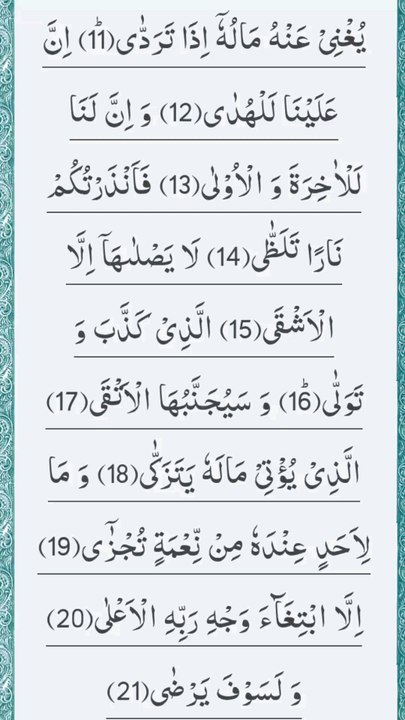 يُغْنِىْ عَنْهُ مَالُهٗۤ اِذَا تَرَدّٰى(ؕ11) اِنَّ
عَلَيْنَا لَلْهُدٰى(12) وَ اِنَّ لَنَا
لَلْاٰخِرَةَ وَ الْاُوْلٰى(13) فَاَنْذَرْتُكُمْ
نَارًا تَلَظّٰى(14) لَا يَصْلٰىهَاۤ اِلَّا
الْاَشْقَى(15) الَّذِىْ كَذَّبَ وَ
تَوَلّٰى(ؕ16) وَ سَيُجَنَّبُهَا الْاَتْقَى(17)
الَّذِىْ يُؤْتِىْ مَالَهٗ يَتَزَكّٰى(18) وَ مَا
لِاَحَدٍ عِنْدَهٗ مِنْ نِّعْمَةٍ تُجْزٰۤى(19)
اِلَّا ابْتِغَآءَ وَجْهِ رَبِّهِ الْاَعْلٰى(20)
وَ لَسَوْفَ يَرْضٰى(21)